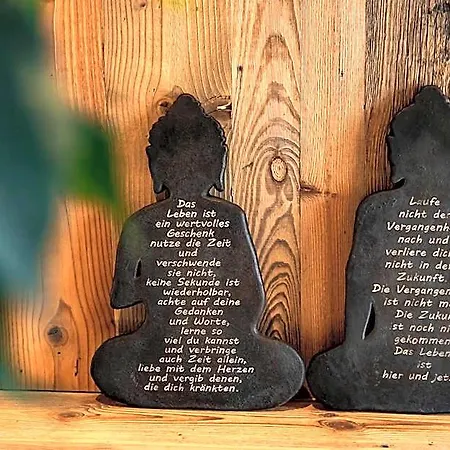 Das
Leben ist
ein wertvolles
Geschenk
nutze die Zeit
und
verschwende
sie nicht,
keine Sekunde ist
wiederholbar,
achte auf deine
Gedanken
und Worte,
lerne so
viel du kannst
und verbringe
auch Zeit allein,
liebe mit dem Herzen
und vergib denen,
die dich kränkten.
Laufe
nicht der
Vergangenh
nach und
verliere dich
nicht in der
Zukunft.
Die Vergangen
ist nicht m
Die Zukun
ist noch ni
gekommen
Das Leben
ist
hier und jetz